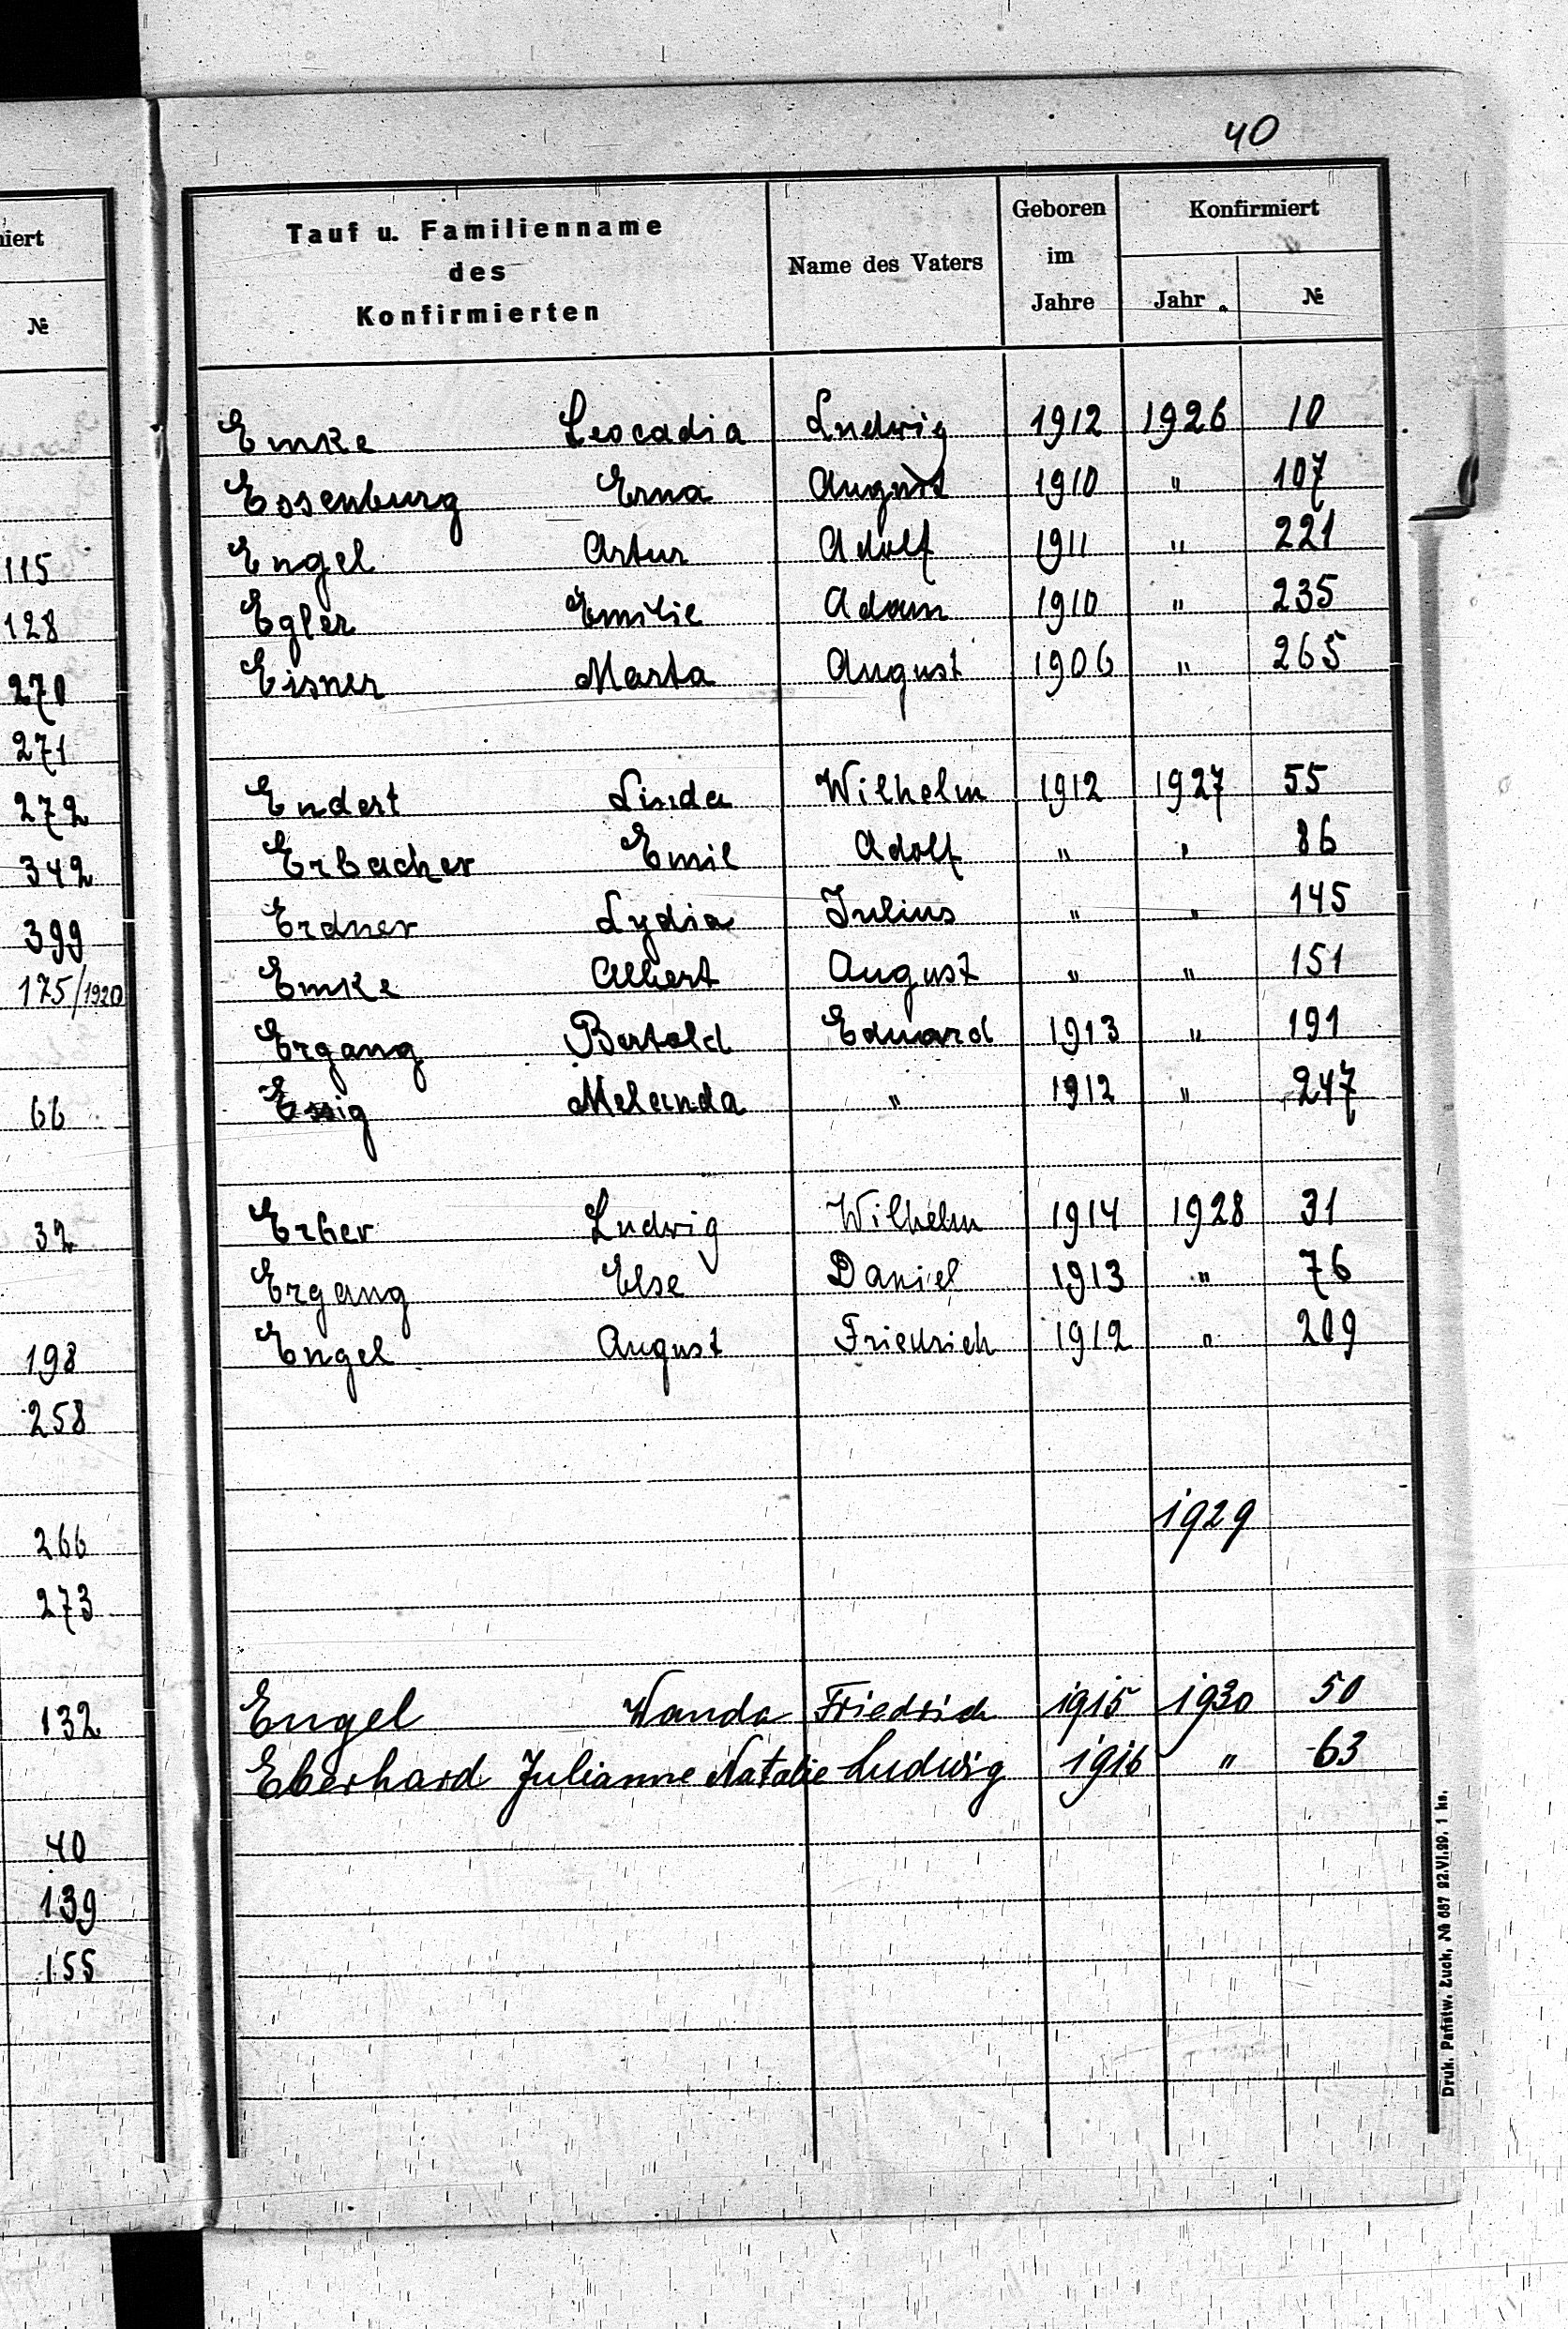 40
miert
№
115
128
270
271
272
342
399
175/1920
66
32
198
258
266
273
132
40
139
155
Tauf u. Familienname
des
Konfirmierten
Name des Vaters
Geboren
im
Jahre
Konfirmiert
Jahr
№
Emke Leocadia Ludwig 1912 1926 10
Essenburg Erna August 1910 " 107
Engel Artur Adolf 1911 " 221
Egler Emilie Adam 1910 " 235
Eisner Marta August 1906 " 265
Endert Linda Wilhelm 1912 1927 55
Erbacher Emil Adolf " " 86
Erdner Lydia Julius " " 145
Emke Albert August " " 151
Ergang Bertold Eduard 1913 " 191
Essig Melanda " 1912 " 247
Erber Ludwig Wilhelm 1914 1928 31
Ergang Else Daniel 1913 " 76
Engel August Friedrich 1912 " 209
1929
Engel Wanda Friedrich 1915 1930 50
Eberhard Julianne Natalie Ludwig 1916 " 63
Druk. Państw. Łuck, № 687 22.VI.29. 1 ks.